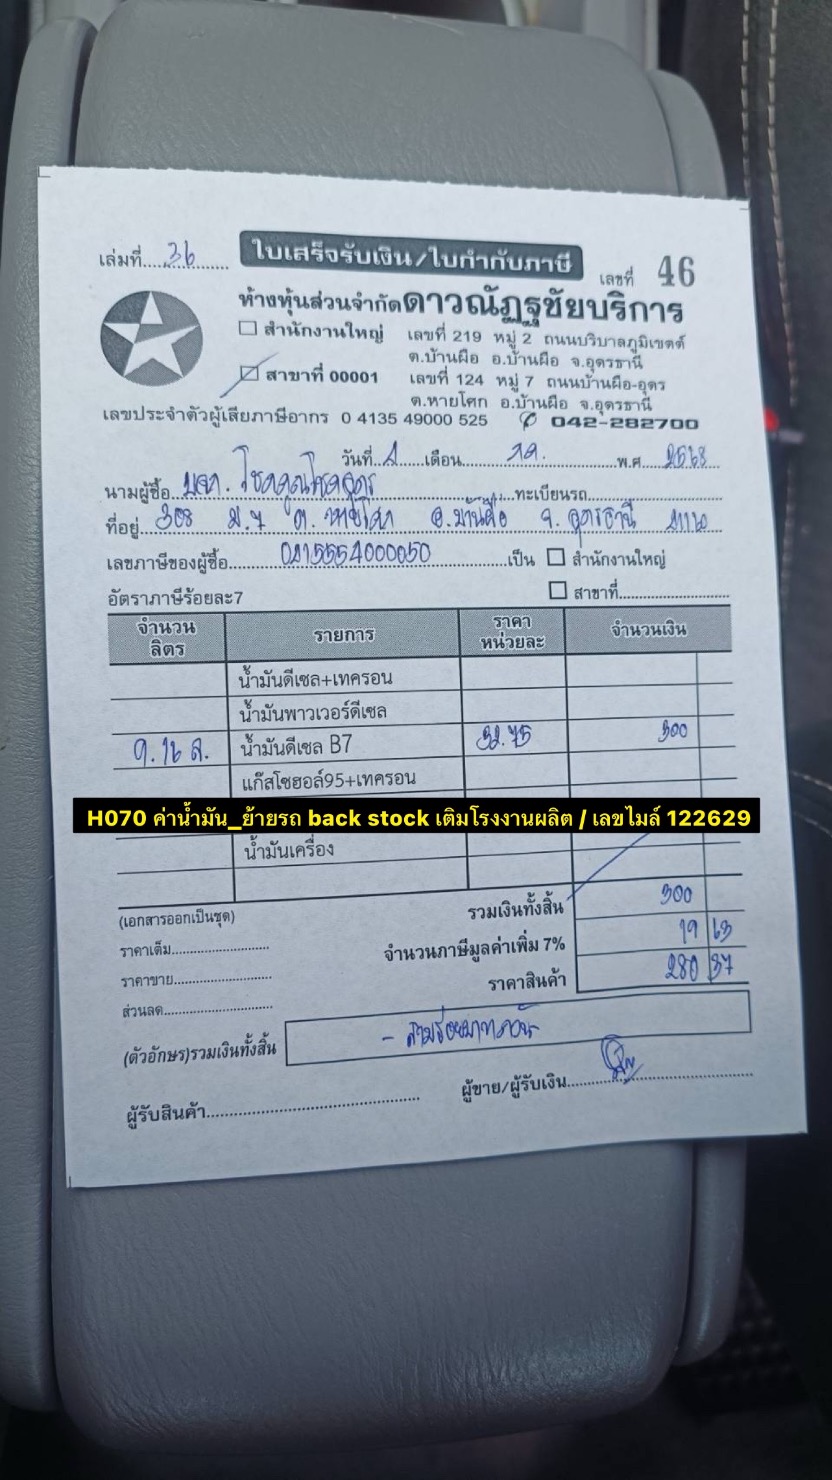 เล่มที่ 36
ใบเสร็จรับเงิน/ใบกำกับภาษี
เลขที่ 46
ห้างหุ้นส่วนจำกัดดาวณัฏฐชัยบริการ
สำนักงานใหญ่ เลขที่ 219 หมู่ 2 ถนนบริบาลภูมิเขตต์
ต.บ้านผือ อ.บ้านผือ จ.อุดรธานี
สาขาที่ 00001 เลขที่ 124 หมู่ 7 ถนนบ้านผือ-อุดร
ต.หายโศก อ.บ้านผือ จ.อุดรธานี
เลขประจำตัวผู้เสียภาษีอากร 0 4135 49000 525 042-282700
วันที่ เดือน พ.ศ. 2568
นามผู้ซื้อ บจก. โชคคูณโชคอุดร ทะเบียนรถ
ที่อยู่ 308 ม.7 ต. หายโศก อ.บ้านผือ จ. อุดรธานี 41160
เลขภาษีของผู้ซื้อ 0415554000050 เป็น สำนักงานใหญ่
อัตราภาษีร้อยละ7 สาขาที่
จำนวนลิตร รายการ ราคาหน่วยละ จำนวนเงิน
น้ำมันดีเซล+เทครอน
น้ำมันพาวเวอร์ดีเซล
9.16 ล. น้ำมันดีเซล B7 32.75 300
แก๊สโซฮอล์95+เทครอน
H070 ค่าน้ำมัน_ย้ายรถ back stock เติมโรงงานผลิต / เลขไมล์ 122629
น้ำมันเครื่อง
(เอกสารออกเป็นชุด) รวมเงินทั้งสิ้น 300
ราคาเต็ม จำนวนภาษีมูลค่าเพิ่ม 7% 19 63
ราคาขาย ราคาสินค้า 280 37
ส่วนลด
(ตัวอักษร)รวมเงินทั้งสิ้น - สามร้อยบาทถ้วน
ผู้รับสินค้า ผู้ขาย/ผู้รับเงิน